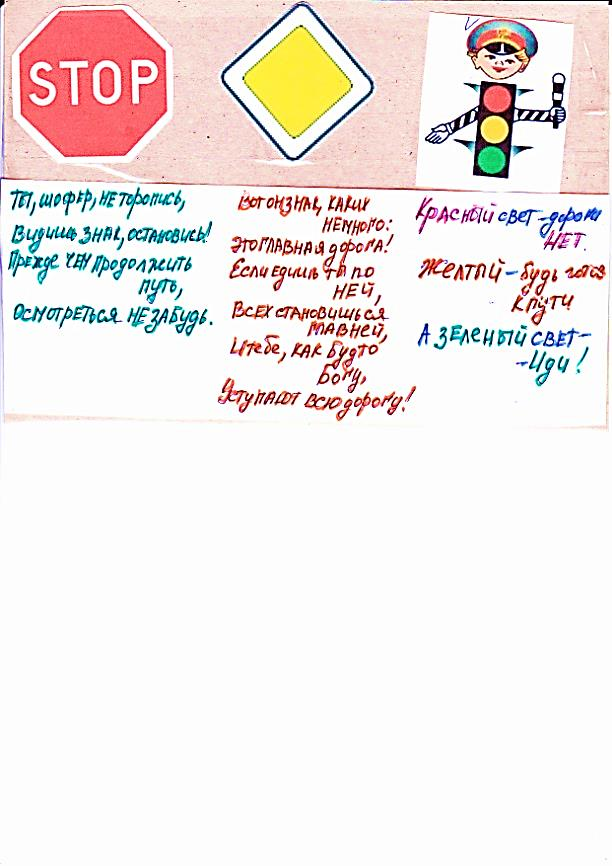 STOP
Ты, шофер, не торопись,
Видишь знак, остановись!
Прежде чем продолжить
путь,
Осмотреться не забудь.
Вот он знак, каких
немного:
Это главная дорога!
Если едишь ты по
ней,
Всех становишься
главней,
И тебе, как будто
Богу,
Уступают всю дорогу!
Красный свет - дороги
нет.
Желтый - будь готов
к пути
А зеленый свет -
- иди!